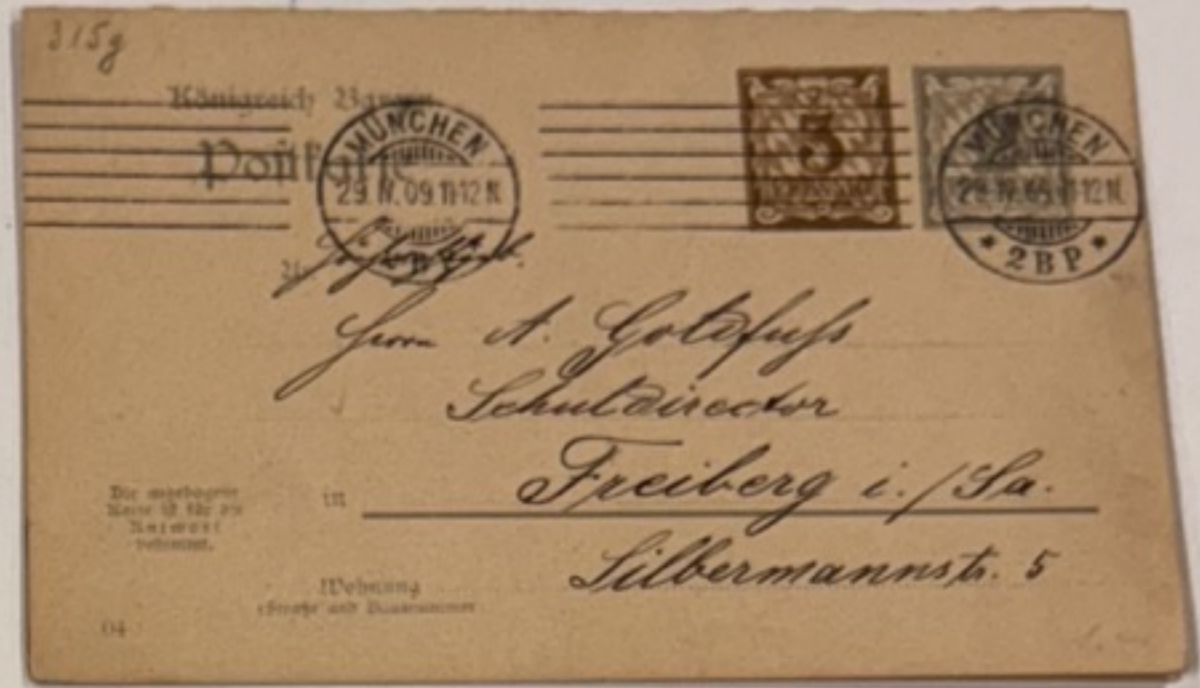 315g
Königreich Bayern
Postkarte
MÜNCHEN
29.IV.09.11-12N.
3
PFENNIG
2
MÜNCHEN
29.IV.09.11-12N.
* 2BP *
Herrn A. Goldfuß
Schuldirector
in Freiberg i./Sa.
Silbermannstr. 5
Die angebogene
Karte ist für die
Antwort
bestimmt.
Wohnung
(Straße und Hausnummer)
04